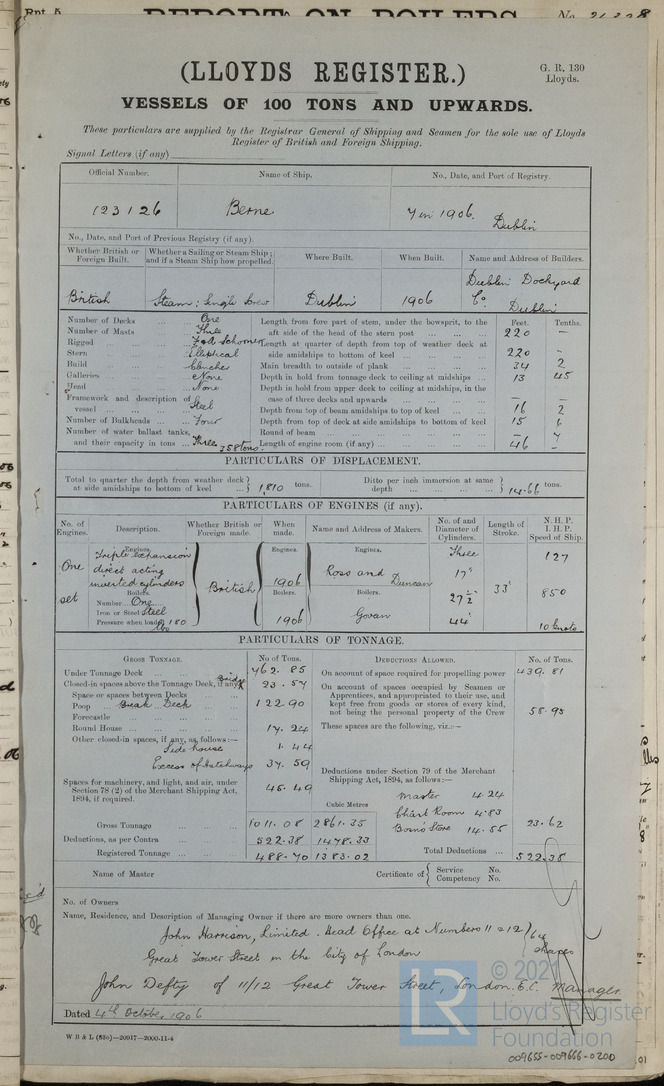 Rpt. 5.
REPORT ON BOILERS
No.
(LLOYDS REGISTER.)
G. R, 130
Lloyds.
VESSELS OF 100 TONS AND UPWARDS.
These particulars are supplied by the Registrar General of Shipping and Seamen for the sole use of Lloyds
Register of British and Foreign Shipping.
Signal Letters (if any)
Official Number. Name of Ship. No., Date, and Port of Registry.
123126 Berne 7 in 1906. Dublin
No., Date, and Port of Previous Registry (if any).
Whether British or Foreign Built. Whether a Sailing or Steam Ship; and if a Steam Ship how propelled. Where Built. When Built. Name and Address of Builders.
British Steam: Single Screw Dublin 1906 Dublin Dockyard Co. Dublin
Feet. Tenths.
Number of Decks ... One Length from fore part of stem, under the bowsprit, to the
Number of Masts ... Three aft side of the head of the stern post ... 220 –
Rigged F & A Schooner Length at quarter of depth from top of weather deck at
Stern Elliptical side amidships to bottom of keel ... 220 –
Build Clencher Main breadth to outside of plank ... 34 2
Galleries None Depth in hold from tonnage deck to ceiling at midships ... 13 45
Head None Depth in hold from upper deck to ceiling at midships, in the
Framework and description of case of three decks and upwards – –
vessel ... Steel Depth from top of beam amidships to top of keel ... 16 2
Number of Bulkheads ... Four Depth from top of deck at side amidships to bottom of keel 15 6
Number of water ballast tanks, Round of beam ... – 7
and their capacity in tons ... Three 358 tons. Length of engine room (if any) ... 46 –
PARTICULARS OF DISPLACEMENT.
Total to quarter the depth from weather deck at side amidships to bottom of keel ... 1,810 tons. Ditto per inch immersion at same depth ... 14.66 tons.
PARTICULARS OF ENGINES (if any).
No. of Engines. Description. Whether British or Foreign made. When made. Name and Address of Makers. No. of and Diameter of Cylinders. Length of Stroke. N. H. P. I. H. P. Speed of Ship.
Engines. Engines. Engines.
One set Triple expansion direct acting inverted cylinders British 1906 Ross and Duncan Three 17" 27½" 44" 33" 127
Boilers. Boilers. Boilers.
Number One 850
Iron or Steel Steel Govan
Pressure when loaded 180 lbs 1906 10 knots
PARTICULARS OF TONNAGE.
GROSS TONNAGE. No of Tons. DEDUCTIONS ALLOWED. No. of Tons.
Under Tonnage Deck ... 762.85 On account of space required for propelling power 439.81
Closed-in spaces above the Tonnage Deck, if any Bridge 23.57 On account of spaces occupied by Seamen or
Space or spaces between Decks Apprentices, and appropriated to their use, and
Poop Break Deck 122.90 kept free from goods or stores of every kind,
Forecastle not being the personal property of the Crew 58.95
Round House 17.24 These spaces are the following, viz.:–
Other closed-in spaces, if any, as follows:–
Side house 1.44
Excess of Hatchways 37.59
Deductions under Section 79 of the Merchant
Shipping Act, 1894, as follows:–
Spaces for machinery, and light, and air, under 45.49
Section 78 (2) of the Merchant Shipping Act,
1894, if required.
Master 4.24
Cubic Metres Chart Room 4.83
Gross Tonnage 1011.08 2861.35 Bosns Store 14.55 23.62
Deductions, as per Contra 522.38 1478.33
Registered Tonnage 488.70 1383.02 Total Deductions ... 522.38
Name of Master Certificate of Service No. Competency No.
No. of Owners
Name, Residence, and Description of Managing Owner if there are more owners than one.
John Harrison, Limited. Head Office at Numbers 11 & 12 64
Great Tower Street in the City of London shares
John Defty of 11/12 Great Tower Street, London. E.C. Manager.
Dated 4th October 1906
W B & L (53c)—20917—2000-11-4
LR
© 2021
Lloyd's Register
Foundation
009655-009666-0200